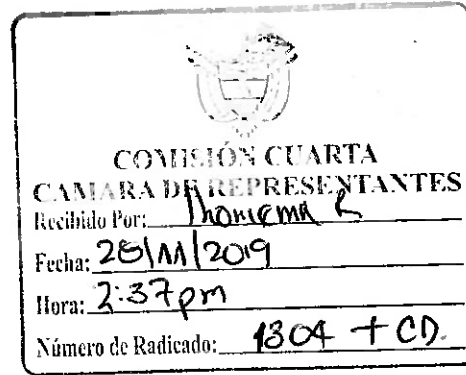 COMISIÓN CUARTA
CAMARA DE REPRESENTANTES
Recibido Por: Jhoniema R
Fecha: 28/11/2019
Hora: 2:37 pm
Número de Radicado: 1304 + CD.